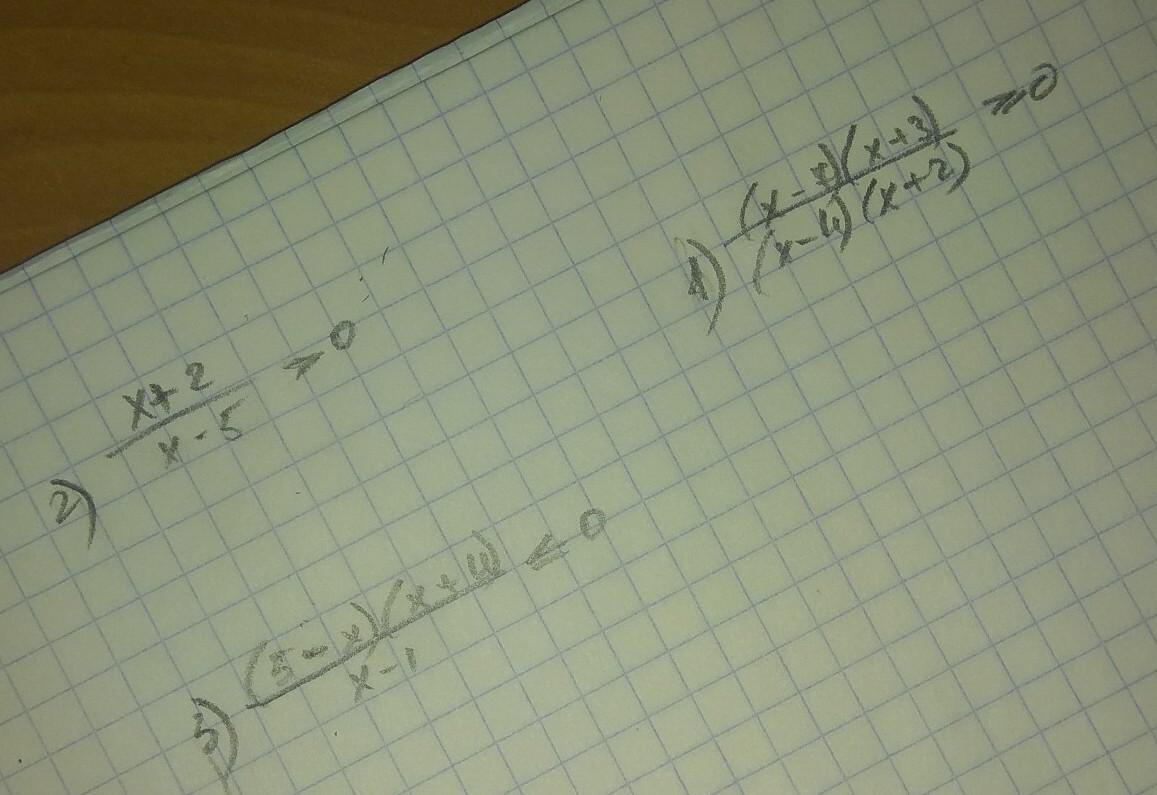 1) (x-5)(x+3)/(x-4)(x+2) ≥ 0
2) x+2/x-5 ≥ 0
3) (5-x)(x+4)/x-1 ≤ 0